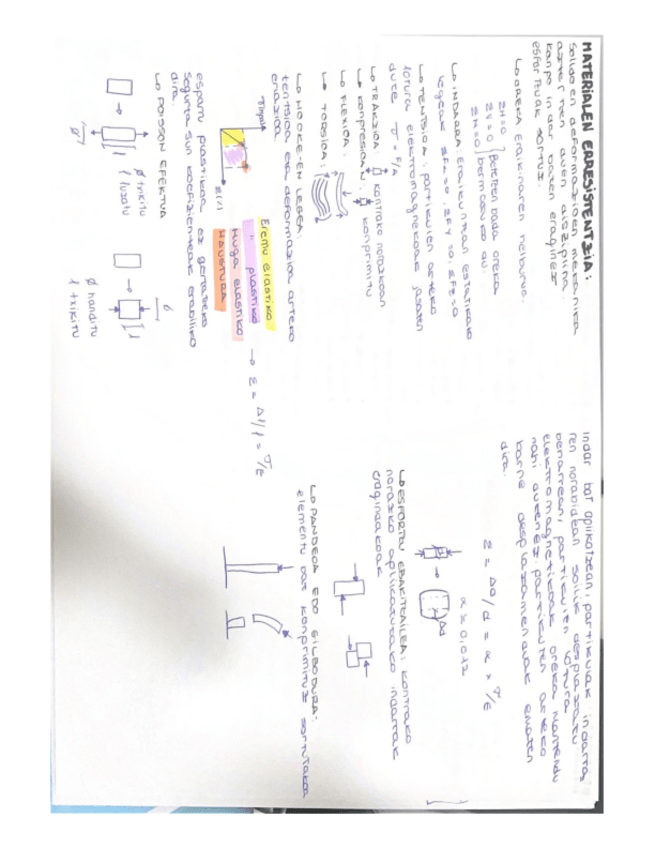 MATERIALEN ERRESISTENTZIA:
Solidoen deformazioen mekanika
aztertzen duen diziplina.
kanpo indar baten eraginez
esfortzuak sortuz.
↳ OREKA eraikinaren helburua.
ΣH=0
ΣV=0 } Betetzen bada oreka
ΣM=0 } bermatuko du.
↳ INDARRA: Eraikuntzan estatikako
legeak ΣFx=0, ΣFy=0, ΣFz=0
↳ TENTSIOA: partikulen arteko
lotura elektromagnekoak jasaten
dute σ = F/A
↳ TRAKZIOA: kontrako norazkoan
↳ KONPRESIOA: konprimitu
↳ FLEXIOA:
↳ TORSIOA:
↳ HOOKE-EN LEGEA:
tentsioa eta deformazioa arteko
erlazioa.
Eremu elastikoa
" plastikoa
Muga elastikoa
HAUSTURA
→ ε = Δl/l = σ/E
espazio plastikoa ez gertatzeko
segurtasun koefizienteak erabiliko
dira.
↳ POISSON EFEKTUA
∅ txikitu
l luzatu
∅ handitu
l txikitu
Indar bat aplikatzean, partikulak indarra
ren norabidean soilik desplazatu
beharrean, partikulen lotura
elektromagnetikoak oreka mantendu
nahi dutenez, partikulen arteko
barne desplazamenduak ematen
dira.
ε = ΔD/d = α × σ/E
↳ ESFORTZU EBAKITZAILEA: kontrako
norazko aplikaturako indarrak
eragindakoak
↳ PANDEOA EDO GILBORDURA:
elementu bat konprimituz sortutakoa